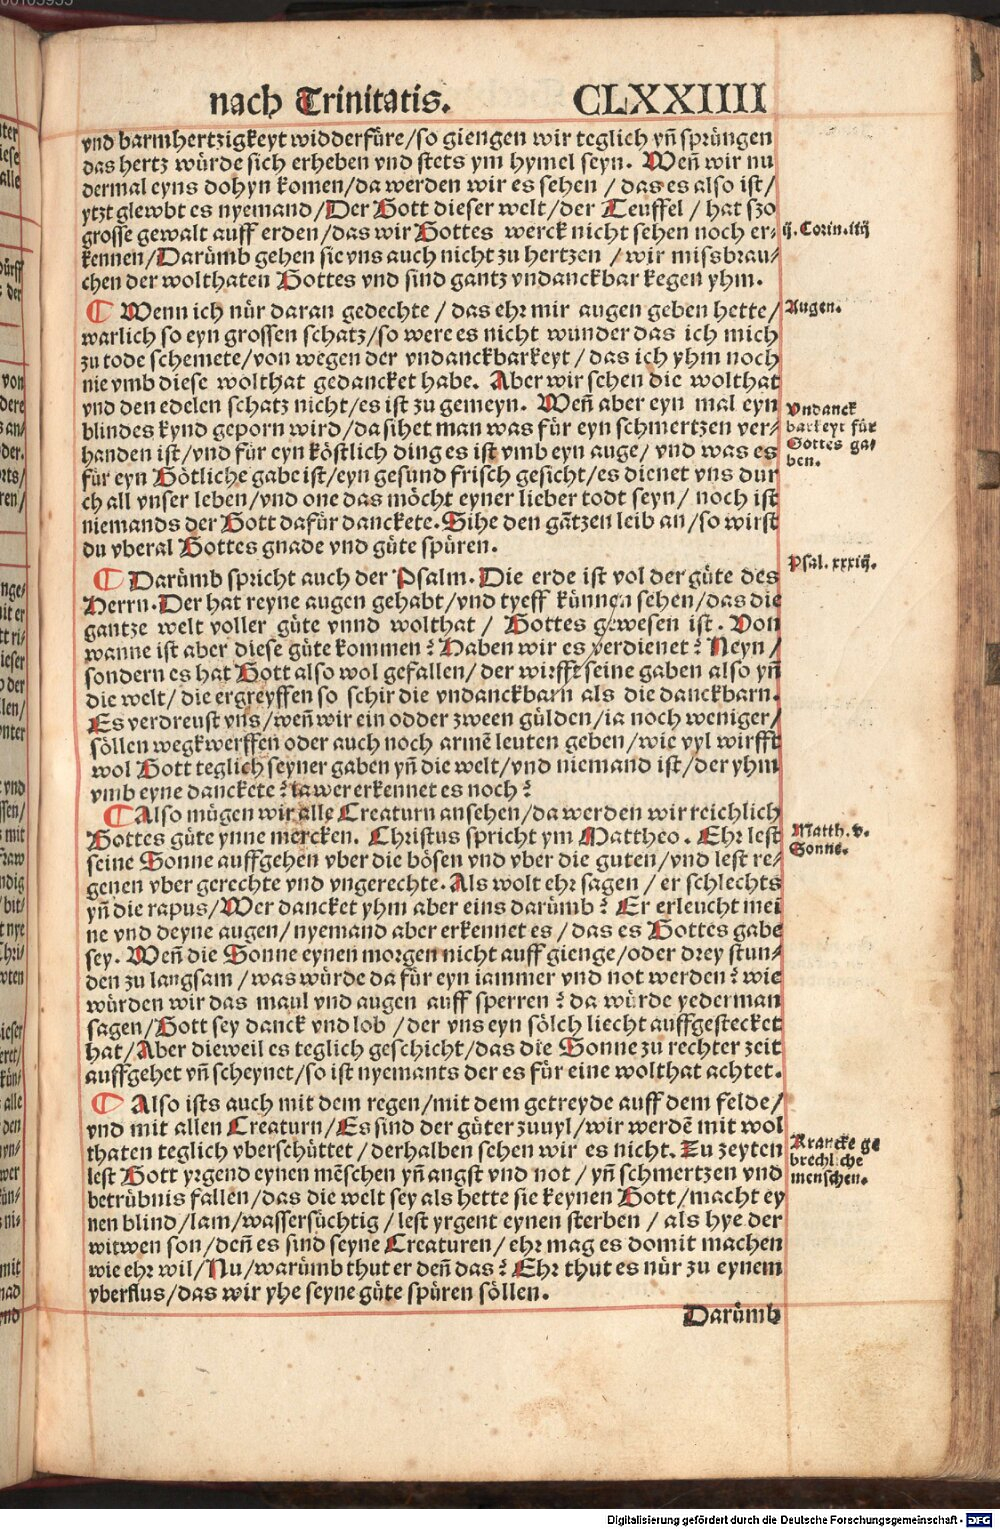 nach Trinitatis. CLXXIIII
vnd barmhertzigkeyt widderfüre/so giengen wir teglich yn̄ sprüngen
das hertz würde sich erheben vnd stets ym hymel seyn. Wen̄ wir nu
dermal eyns dohyn komen/da werden wir es sehen / das es also ist/
ytzt glewbt es nyemand/Der Gott dieser welt/der Teuffel / hat szo
grosse gewalt auff erden/das wir Gottes werck nicht sehen noch er⸗
ij. Corin. iiij
kennen/Darümb gehen sie vns auch nicht zu hertzen / wir missbrau⸗
chen der wolthaten Gottes vnd sind gantz vndanckbar kegen yhm.
¶ Wenn ich nür daran gedechte / das ehr mir augen geben hette/
Augen.
warlich so eyn grossen schatz/so were es nicht wunder das ich mich
zu tode schemete/von wegen der vndanckbarkeyt / das ich yhm noch
nie vmb diese wolthat gedancket habe. Aber wir sehen die wolthat
vnd den edelen schatz nicht/es ist zu gemeyn. Wen̄ aber eyn mal eyn
blindes kynd geporn wird/da sihet man was für eyn schmertzen ver⸗
Vndanck
barkeyt für
Gottes ga⸗
ben.
handen ist/vnd für eyn köstlich ding es ist vmb eyn auge/ vnd was es
für eyn Götliche gabe ist/eyn gesund frisch gesicht/es dienet vns dur
ch all vnser leben/vnd one das möcht eyner lieber todt seyn/ noch ist
niemands der Gott dafür danckete. Sihe den gātzen leib an/so wirst
du vberal Gottes gnade vnd güte spüren.
¶ Darümb spricht auch der Psalm. Die erde ist vol der güte des
Psal. xxxiij.
Herrn. Der hat reyne augen gehabt/vnd tyeff künnen sehen/das die
gantze welt voller güte vnnd wolthat / Gottes gewesen ist. Von
wanne ist aber diese güte kommen? Haben wir es verdienet? Neyn/
sondern es hat Gott also wol gefallen/ der wirfft seine gaben also yn̄
die welt/ die ergreyffen so schir die vndanckbarn als die danckbarn.
Es verdreust vns/wen̄ wir ein odder zween gülden/ia noch weniger/
söllen wegkwerffen oder auch noch armē leuten geben/wie vyl wirfft
wol Gott teglich seyner gaben yn̄ die welt/vnd niemand ist/der yhm
vmb eyne danckete? ia wer erkennet es noch?
¶ Also mügen wir alle Creaturn ansehen/da werden wir reichlich
Gottes güte ynne mercken. Christus spricht ym Mattheo. Ehr lest
Matth. v.
Sonne.
seine Sonne auffgehen vber die bösen vnd vber die guten/vnd lest re⸗
genen vber gerechte vnd vngerechte. Als wolt ehr sagen / er schlechts
yn̄ die rapus/Wer dancket yhm aber eins darümb? Er erleucht mei
ne vnd deyne augen/nyemand aber erkennet es / das es Gottes gabe
sey. Wen̄ die Sonne eynen morgen nicht auff gienge/oder drey stun⸗
den zu langsam / was würde da für eyn iammer vnd not werden? wie
würden wir das maul vnd augen auff sperren? da würde yederman
sagen/Gott sey danck vnd lob / der vns eyn sölch liecht auffgestecket
hat/Aber dieweil es teglich geschicht/das die Sonne zu rechter zeit
auffgehet vn̄ scheynet/so ist nyemants der es für eine wolthat achtet.
¶ Also ists auch mit dem regen/mit dem getreyde auff dem felde/
vnd mit allen Creaturn/Es sind der güter zuuyl/wir werdē mit wol
thaten teglich vberschüttet/derhalben sehen wir es nicht. Zu zeyten
Krancke ge
brechliche
menschen.
lest Gott yrgend eynen mēschen yn̄ angst vnd not / yn̄ schmertzen vnd
betrübnis fallen/das die welt sey als hette sie keynen Gott/macht ey
nen blind/lam/wassersüchtig/lest yrgent eynen sterben / als hye der
witwen son/den̄ es sind seyne Creaturen/ ehr mag es domit machen
wie ehr wil/Nu/warümb thut er den̄ das? Ehr thut es nür zu eynem
vberflus/das wir yhe seyne güte spüren söllen.
Darümb
Digitalisierung gefördert durch die Deutsche Forschungsgemeinschaft - DFG